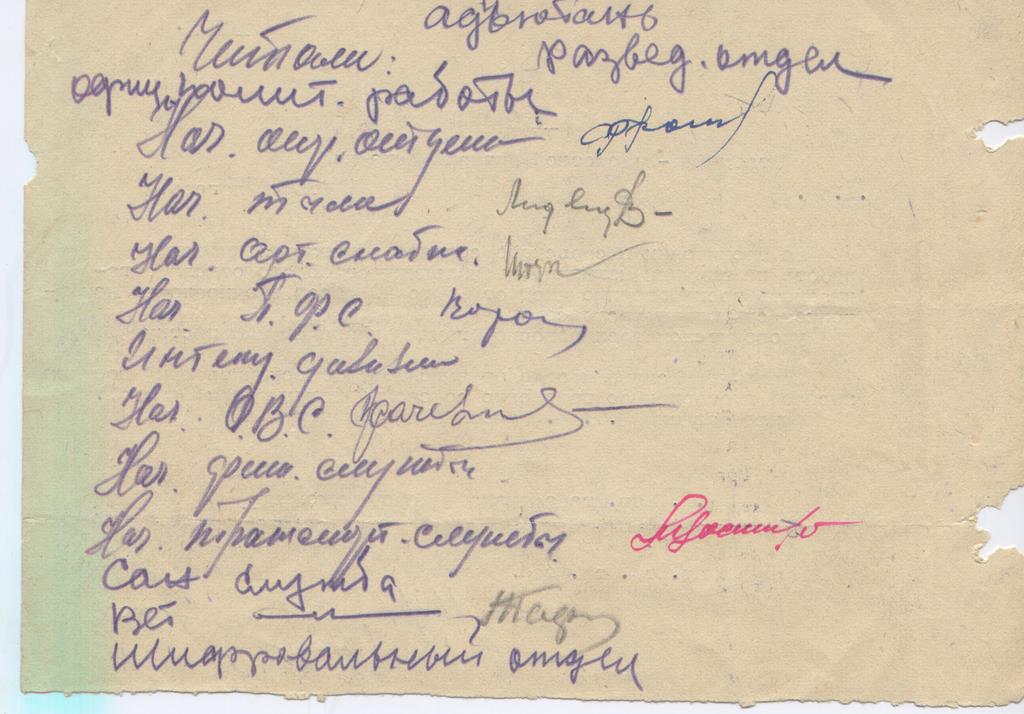 адъютант
Читали: развед. отдел
офиц. полит. работы
Нач. опер. отдел
Нач. тыла
Нач. арт. снабж.
Нач П.Ф.С.
Интенд. дивизии
Нач. О.В.С.
Нач. фин. службы
Нач. транспорт. службы
Сан служба
Вет —"—
Шифровальный отдел